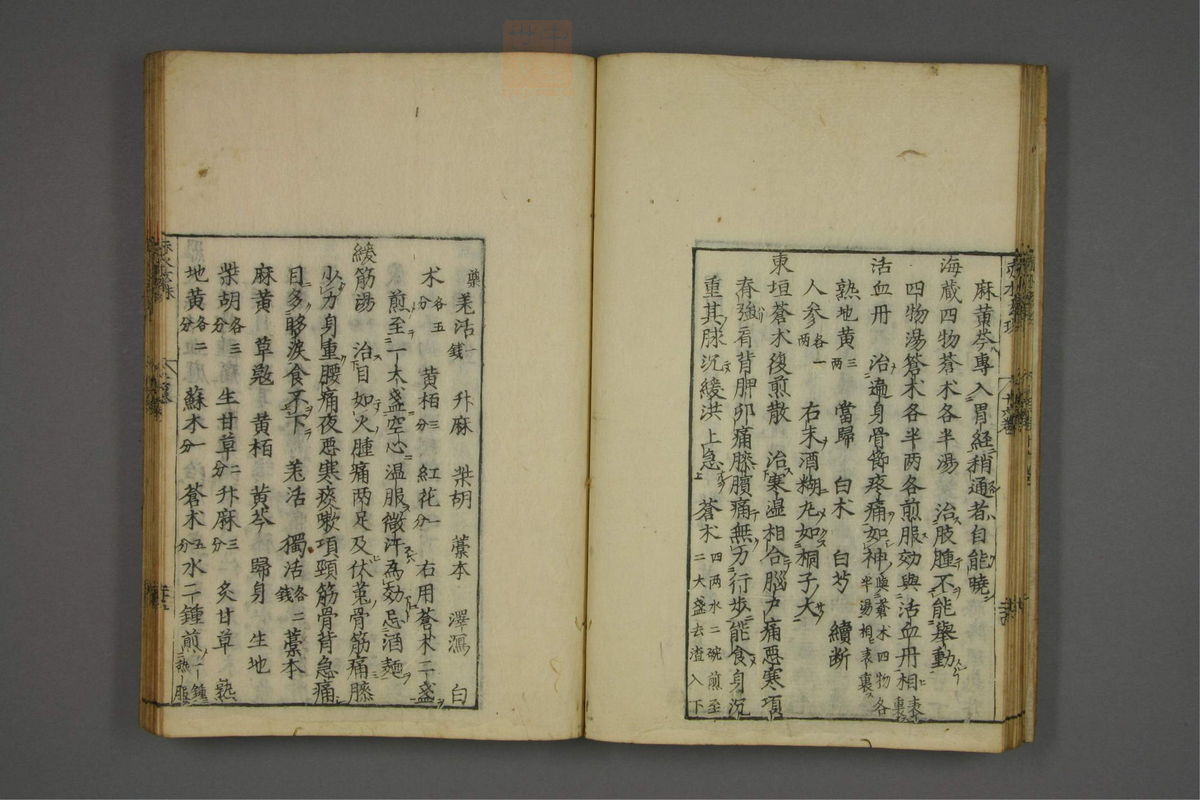 麻黄芩專入胃經稍通者自能曉
海蔵四物蒼术各半湯　治肢腫不能舉動
四物湯蒼术各半两各煎服効與活血丹相表裏
活血丹　治遍身骨節疼痛如神與蒼术四物各半湯相表裏
熟地黄三两　當歸　白术　白芍　續断
人參各一两　右末酒糊丸如桐子大
東垣蒼术後煎散　治寒湿相合腦户痛悪寒項
脊強肩背胛卯痛膝臏痛無力行歩能食身沉
重其脉沉緩洪上急　蒼术四两水二碗煎至二大盞去渣入下
藥　羌活一錢　升麻　柴胡　藁本　澤瀉　白
术各五分　黄栢三分　紅花一分　右用蒼术二盞
煎至一大盞空心温服微汗為効忌酒麺
緩筋湯　治目如火腫痛两足及伏兎骨筋痛膝
少力身重腰痛夜悪寒痰嗽項頸筋骨背急痛
目多眵涙食不下　羌活　獨活各二錢　藁本
麻黄　草䓻　黄栢　黄芩　歸身　生地
柴胡各三分　生甘草二分　升麻三分　炙甘草　熟
地黄各二分　蘇木一分　蒼术五分　水二鍾煎一鍾熱服